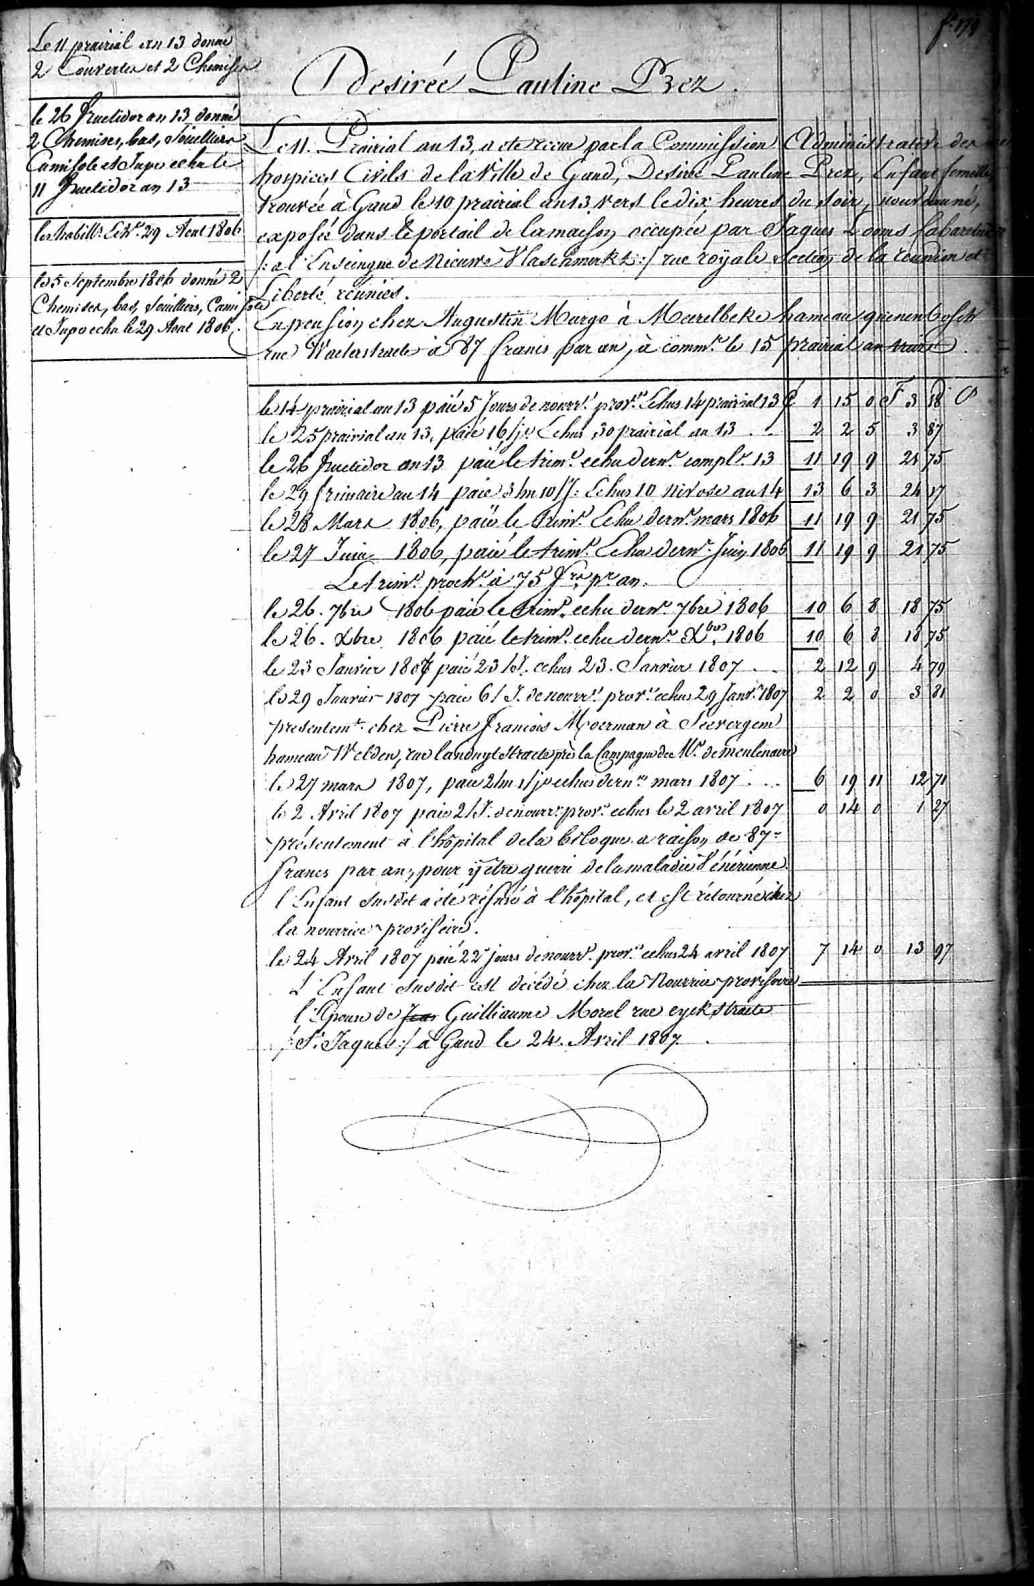 fo 179
Le 11 prairial an 13 donné
2 Couvertes et 2 Chemises
le 26 fructidor an 13 donné
2 Chemises, bas, Souilliers
Camisole et Jupe echu le
11 fructidor an 13
les habillts Echs 29 Aout 1806
le 5 Septembre 1806 donné 2
Chemises, bas, Souilliers, Camisole
et Jupe echu le 29 Aout 1806.
Desirée Pauline Prez.
Le 11. Prairial an 13, a eté recue par la Commission Administrative des
hospices Civils de la Ville de Gand, Desirée Pauline Prez, Enfant femelle
trouvée à Gand le 10 prairial an 13 vers le dix heures du Soir, nouveau né,
exposée dans le portail de la maison occupée par Jaques Looms Cabaretier
/: a l'Enseingne de Nieuwe Vlaschmerkt :/ rue royale Section de la reunion et
Liberté reunies.
En pension chez Augustin Margo à Meerelbeke hameau quenenbosch
rue Waeterstraete à 87 francs par an, à commr le 15 prairial an treize
le 14 prairial an 13 paié 5 Jours de nourrt provre Echus 14 prairial 13 £ 1 15 0 F 3 18
le 25 prairial an 13, paié 16/js Echus 30 prairial an 13 . . 2 2 5 3 87
le 26 fructidor an 13 paié le trimre echu dernr complre 13 11 19 9 21 75
le 29 frimaire an 14 paié 3/m 10/J: Echus 10 Nivose an 14 13 6 3 24 17
le 28 Mars 1806, paié le Trimre Echu dernr mars 1806 11 19 9 21 75
le 27 Juin 1806, paié le trimre Echu dernr Juin 1806 11 19 9 21 75
Le trimre prochn à 75 frs pr an.
le 26. 7bre 1806 paié le Trimre echu dernr 7bre 1806 10 6 8 18 75
le 26. Xbre 1806 paié le trimre echu dernr Xbre 1806 10 6 8 18 75
le 23 Janvier 1807 paié 23/J. echus 23. Janvier 1807 . . 2 12 9 4 79
le 29 Janvier 1807 paié 6/J. de nourrt provre echus 29 Janvr 1807 2 2 0 3 81
presentemt chez Pierre francois Moerman à Seevergem
hameau Welden, rue landuytstraete près la Campagne de Mr de meulenaere
le 27 mars 1807, paié 2/m 1/jr echus dernr mars 1807 . . . 6 19 11 12 71
le 2 Avril 1807 paié 2/J. de nourre provre echus le 2 avril 1807 0 14 0 1 27
présentement à l'hôpital de la biloque a raison de 87
francs par an, pour y être gueri de la maladie Vénérienne
l'Enfant Susdit a été réfusé à l'hôpital, et est rétourné chez
la nourrice provisoire.
le 24 Avril 1807 paié 22 jours de nourrt provre echus 24 avril 1807 7 14 0 13 97
L'Enfant Susdit est décédé chez la Nourrice provisoire
l'Epouse de Jean Guilliaume Morel rue eyckstraete
/: St Jaques :/ à Gand le 24. Avril 1807.